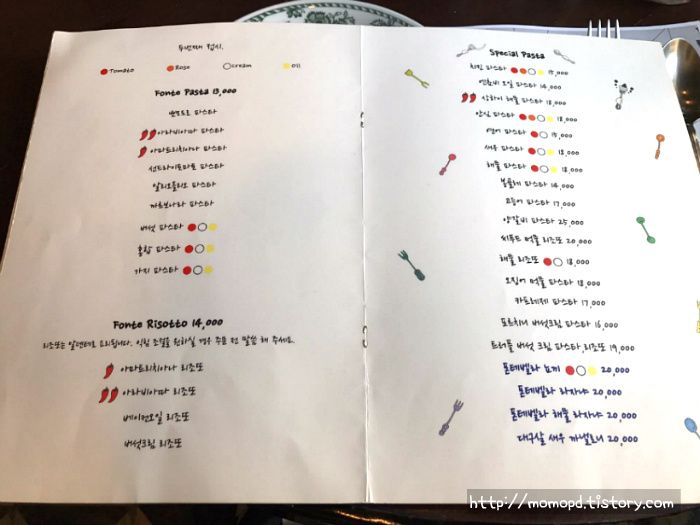 두번째 접시.
Tomato Rose cream oil
Fonte Pasta 13,000
뽀모도로 파스타
아라비아따 파스타
아마트리치아나 파스타
썬드라이토마토 파스타
알리오올리오 파스타
까르보나라 파스타
버섯 파스타
홍합 파스타
가지 파스타
Fonte Risotto 14,000
리조또는 알덴테로 요리됩니다. 익힘 조절을 원하실 경우 주문 전 말씀 해 주세요.
아마트리치아나 리조또
아라비아따 리조또
베이컨오일 리조또
버섯크림 리조또
Special Pasta
치킨 파스타 15,000
엔초비 오일 파스타 14,000
상하이 해물 파스타 18,000
안심 파스타 18,000
연어 파스타 15,000
새우 파스타 18,000
해물 파스타 18,000
봉골레 파스타 14,000
고등어 파스타 17,000
양갈비 파스타 25,000
씨푸드 먹물 리조또 20,000
해물 리조또 18,000
오징어 먹물 파스타 18,000
카프레제 파스타 17,000
포르치니 버섯크림 파스타 16,000
트러플 버섯 크림 파스타,리조또 19,000
폰테벨라 뇨끼 20,000
폰테벨라 라자냐 20,000
폰테벨라 해물 라자냐 20,000
대구살 새우 까넬로니 20,000
http://momopd.tistory.com